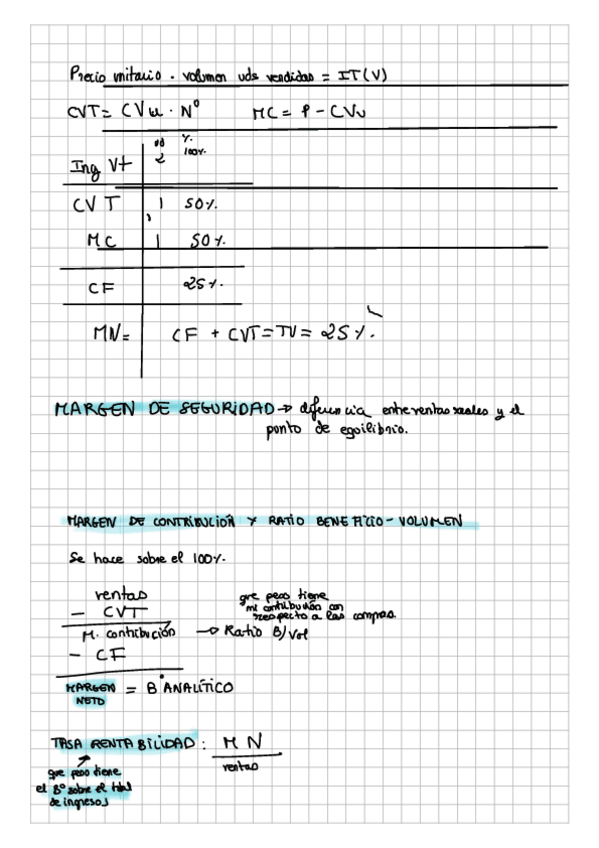 Precio unitario . volumen uds vendidas = IT(V)
CVT= CVu . Nº MC = P - CVu
ud %.
Ing Vt 2 100%.
CVT 1 50%.
MC 1 50%.
CF 25%.
MN= CF + CVT = TV = 25%.
MARGEN DE SEGURIDAD → diferencia entre ventas reales y el
punto de egoilibrio.
MARGEN DE CONTRIBUCIÓN Y RATIO BENEFICIO - VOLUMEN
Se hace sobre el 100%.
ventas
- CVT
M. contribución → Ratio B/Vol
que peso tiene
mi contribución con
respecto a las compras.
- CF
MARGEN NETO = Bº ANALÍTICO
TASA RENTABILIDAD : MN
ventas
que peso tiene
el Bº sobre el total
de ingresos